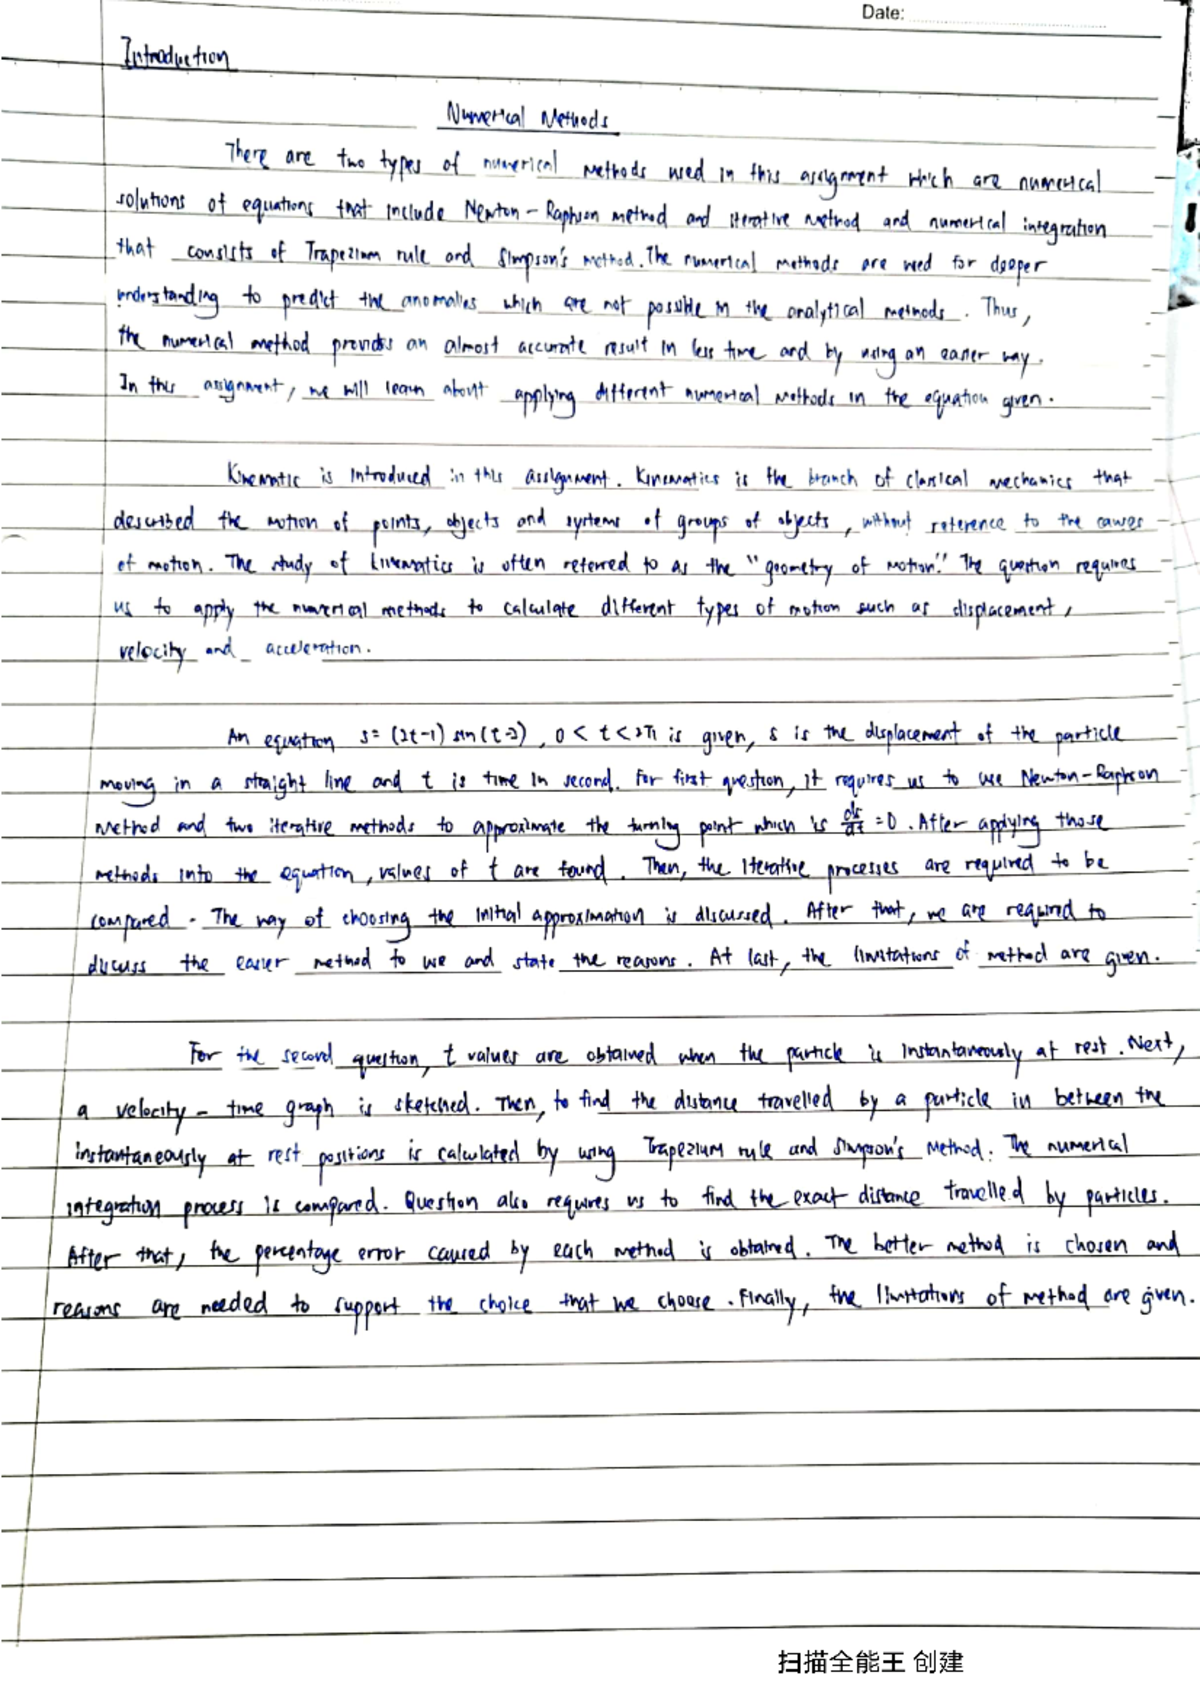 Date:
Introduction
Numerical Methods
There are two types of numerical methods used in this assignment which are numerical
solutions of equations that include Newton-Raphson method and iterative method and numerical integration
that consists of Trapezium rule and Simpson's method. The numerical methods are used for deeper
understanding to predict the anomalies which are not possible in the analytical methods. Thus,
the numerical method provides an almost accurate result in less time and by using an easier way.
In this assignment, we will learn about applying different numerical methods in the equation given.
Kinematic is introduced in this assignment. Kinematics is the branch of classical mechanics that
described the motion of points, objects and systems of groups of objects, without reference to the causes
of motion. The study of kinematics is often referred to as the "geometry of motion." The question requires
us to apply the numerical methods to calculate different types of motion such as displacement,
velocity and acceleration.
An equation s= (2t-1) sin(t-2), 0 < t < 2π is given, s is the displacement of the particle
moving in a straight line and t is time in second. For first question, it requires us to use Newton-Raphson
Method and two iterative methods to approximate the turning point which is ds/dt =0. After applying those
methods into the equation, values of t are found. Then, the iterative processes are required to be
compared. The way of choosing the initial approximation is discussed. After that, we are required to
discuss the easier method to use and state the reasons. At last, the limitations of method are given.
For the second question, t values are obtained when the particle is instantaneously at rest. Next,
a velocity - time graph is sketched. Then, to find the distance travelled by a particle in between the
instantaneously at rest positions is calculated by using Trapezium rule and Simpson's Method. The numerical
integration process is compared. Question also requires us to find the exact distance travelled by particles.
After that, the percentage error caused by each method is obtained. The better method is chosen and
reasons are needed to support the choice that we choose. Finally, the limitations of method are given.
扫描全能王 创建